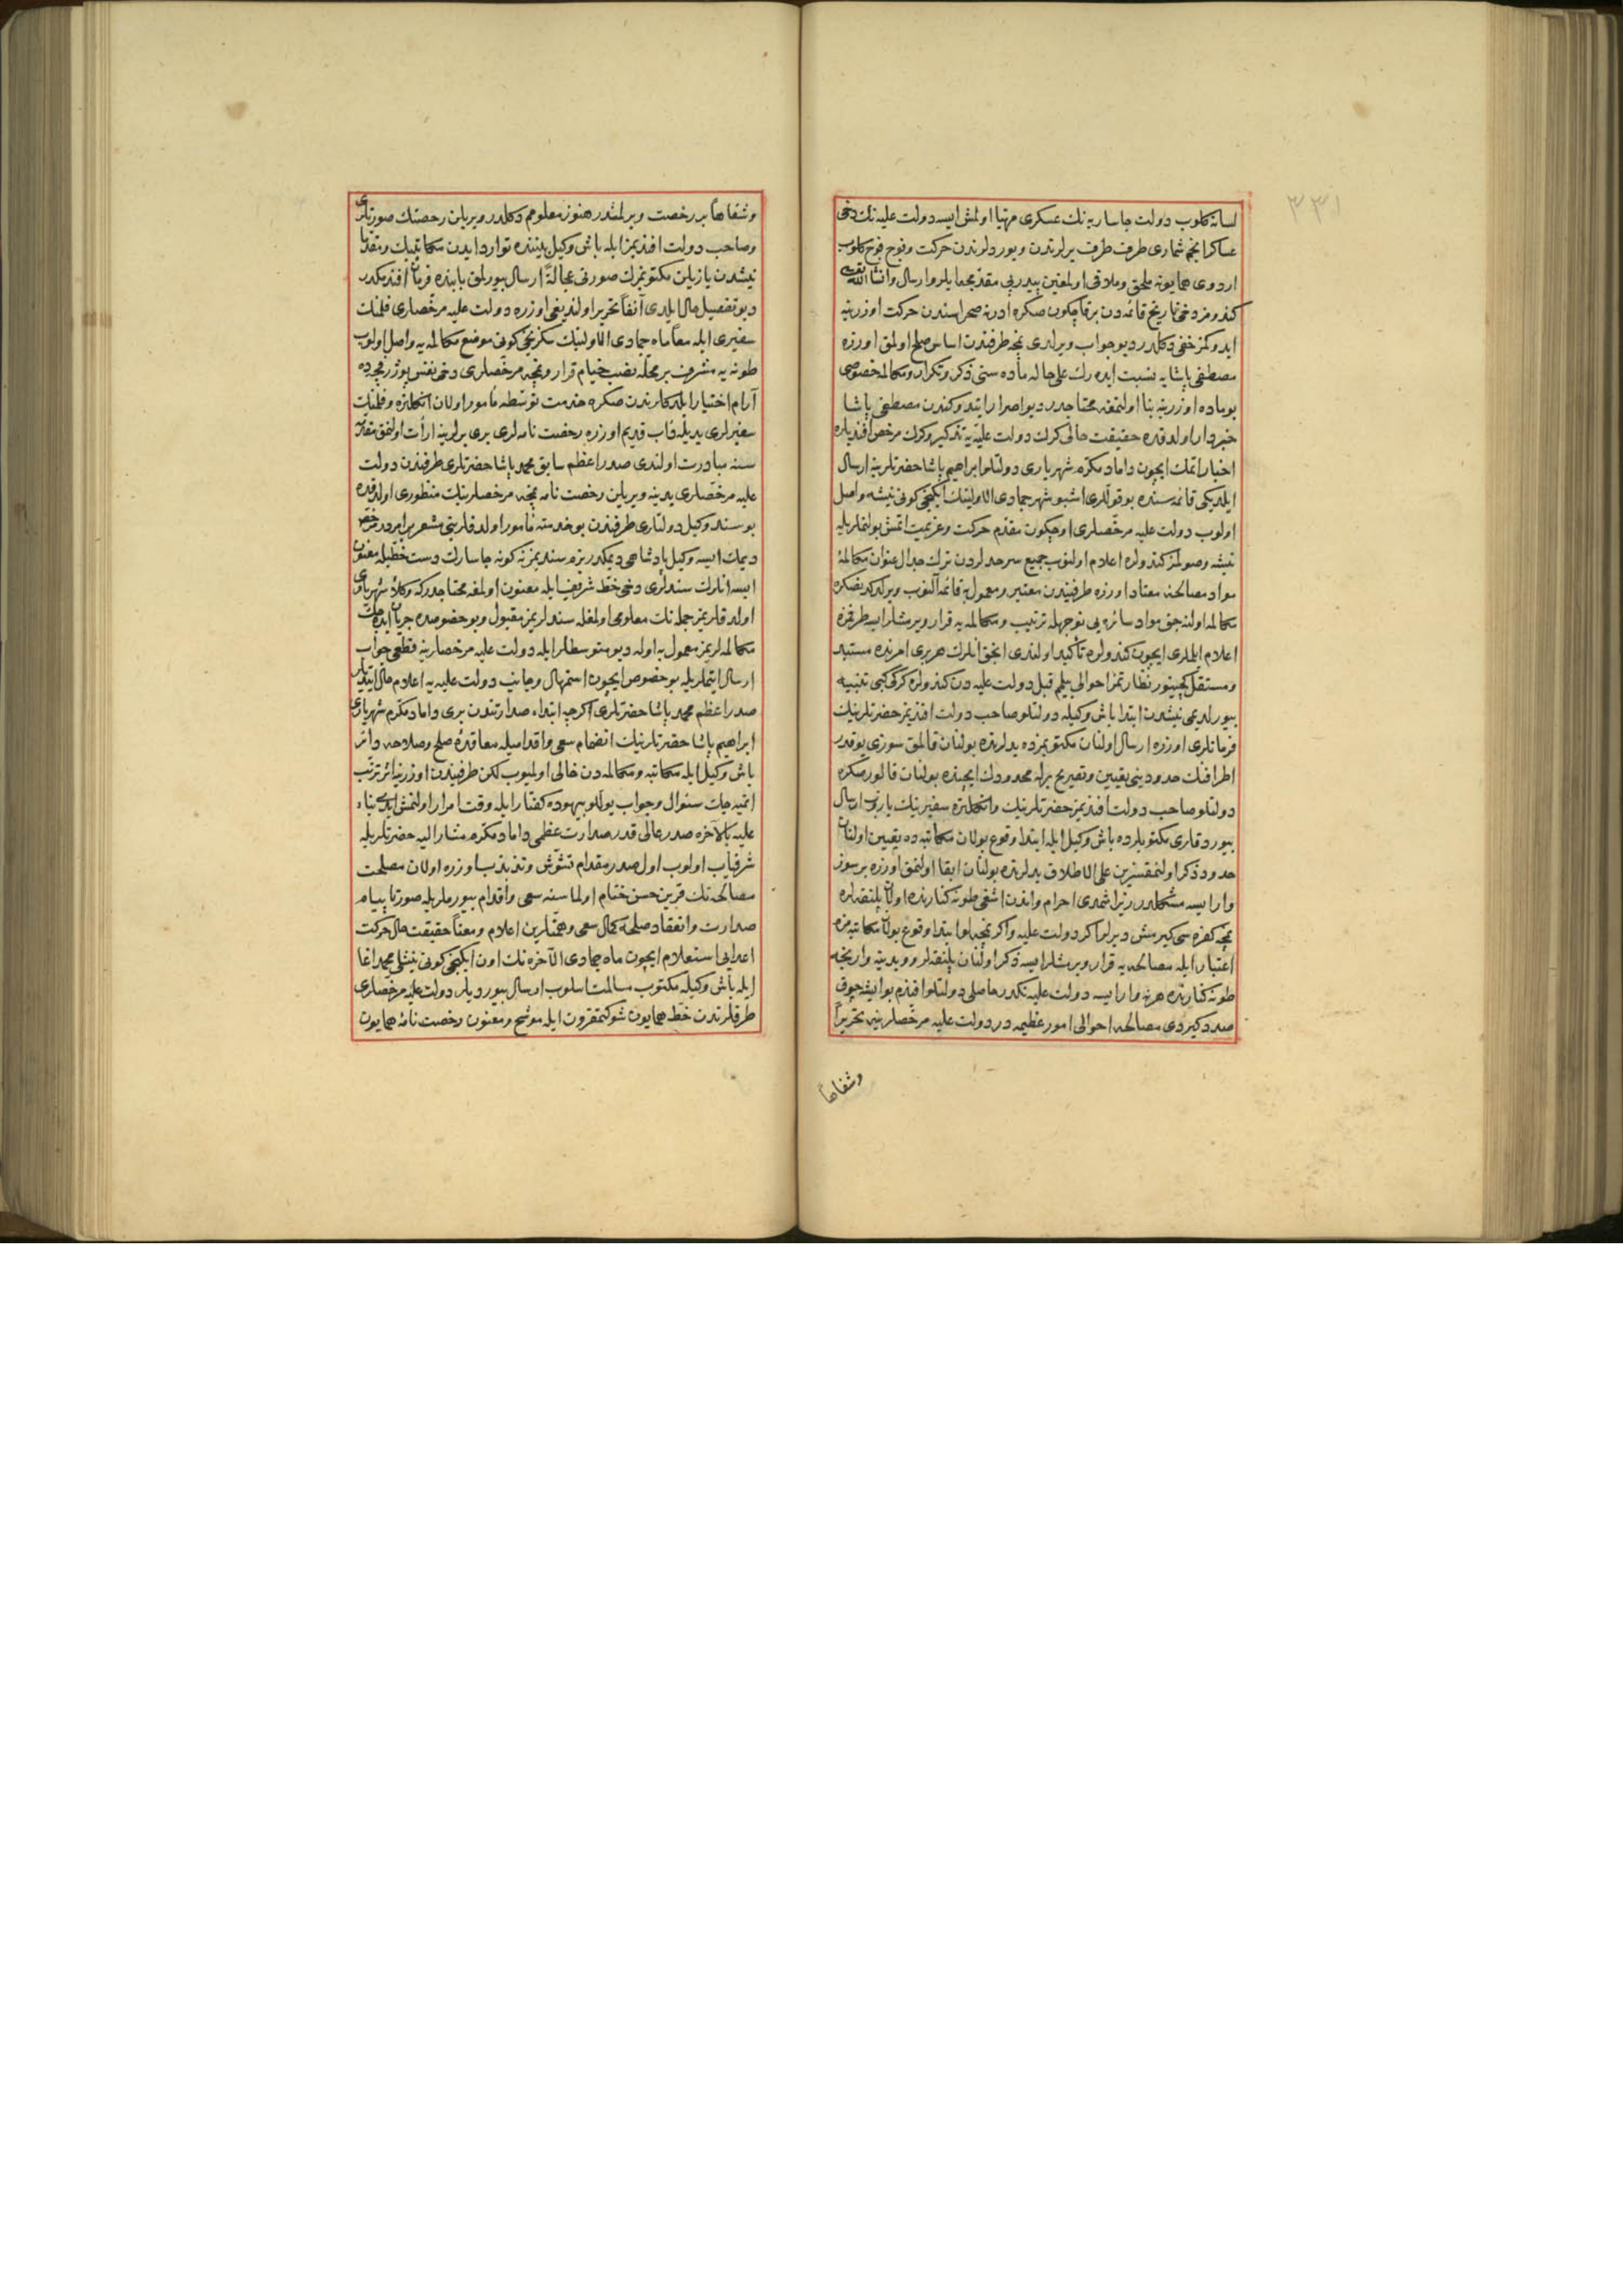 ٣٣١
لسانه كلوب دولت جاساریه نك عسكری مهیا اولمش ایسه دولت علیه نك دخی
عساكر انجم شماری طرف طرف یرلرندن و یوردلرندن حركت و فوج فوج كلوب
اردوی همایونه ملحق و ملاقی اولمغین پیدرپی مقدمجه ایلرو ارسال و انشاالله تعالی
كندومز دخی تاریخ قائمه دن بر قاچ كون صكره ادرنه صحراسندن حركت اوزرینه
ایدوكمز خفی دكلدر دیو جواب ویرلدی نمچه طرفندن اساس صلح اولمق اوزره
مصطفی پاشایه نسبت ایده رك علی حاله ماده سنی ذكر و تكرار و مكالمه خصوصی
بو ماده اوزرینه بنا اولنمغه محتاجدر دیو اصرار ایتدوكندن مصطفی پاشا
خبردار اولدقده حقیقت حالی كرك دولت علیه یه تذكیر و كرك مرخص افندیلره
اخبار اتمك ایچون داماد مكرم شهریاری دولتلو ابراهیم پاشا حضرتلرینه ارسال
ایلدیكی قائمه سنده بو قوللری اشبو شهر جمادی الاولینك ایكنجی كونی نیشه واصل
اولوب دولت علیه مرخصلری اوچ كون مقدم حركت و عزیمت اتمش بولنملریله
نیشه وصولمز كندولره اعلام اولنوب جمیع سرحدلردن ترك جدال عنوان مكالمۀ
مواد مصالحه معتاد اوزره طرفیندن معتبر و معمول به قائمه آلنوب ویرلدكدنصكره
مكالمه اولنه جق مواد سائره یی توجهله ترتیب و مكالمه یه قرار ویرمشلر ایسه طرفمزه
اعلام ایلملری ایچون كندولره تأكید اولندی انجق انلرك هر بری امرنده مستبد
و مستقل كچینور نظارتمز احوالی بیلم قبل دولت علیه دن كندولره كركی كبی تنبیه
بیورلدیمی نیشدن ابتدا باش وكیله دولتلو صاحب دولت افندیمز حضرتلرینك
فرمانلری اوزره ارسال اولنان مكتوبمزده یدلرنده بولنان قالمق سوزی یوقدر
اطرافنك حدودینی تعیین و تصریح برله محدودك ایچنده بولنان قالور صكره
دولتلو صاحب دولت افندیمز حضرتلرینك و انكلتره سفیرینك یازوب ارسال
بیوردقلری مكتوبلرده باش وكیل ایله ابتدا وقوع بولان مكاتبه ده تعیین اولنان
حدود ذكر اولنمقسزین علی الاطلاق یدلرنده بولنان ابقا اولنمق اوزره بر سوز
وار ایسه مشكلدر زیرا شمدی احرام و اندن اشغی طونه كنارنده اولان پلنقه لره
نمچه كفره سی كیرمش دیرلر اكر دولت علیه و اكر نمچه لو ابتدا وقوع بولان مكاتبه مزه
اعتبار ایله مصالحه یه قرار ویرمشلر ایسه ذكر اولنان پلنقه لر و ویدینه وارنجه
طونه كنارنده هر نه وار ایسه دولت علیه نكدر حاصلی دولتلو افندم بو ایشه چوق
صدد كیردی مصالحه احوالی امور عظیمه در دولت علیه مرخصلرینه تحریراً
وشفاهاً
وشفاهاً بر رخصت ویرلمشدر هنوز معلومم دكلدر ویریلن رخصتك صورتلری
و صاحب دولت افندیمز ایله باش وكیل بیننده توارد ایدن مكاتیبك و مقدما
نیشدن یازیلن مكتوبمزك صورتی عجالةً ارسال بیورلمق بابنده فرمان افندمكدر
دیو تفصیل حال ایلدی آنفاً تحریر اولندیغی اوزره دولت علیه مرخصلری فلمنك
سفیری ایله معاً ماه جمادی الاولینك سكزنجی كونی موضع مكالمه یه واصل اولوب
طونه یه مشرف بر محله نصب خیام قرار و نمچه مرخصلری دخی نفس پوژرفچه ده
آرام اختیار ایلدكلرندن صكره خدمت توسطه مأمور اولان انكلتره و فلمنك
سفیرلری یدیله داب قدیم اوزره رخصت نامه لری بری برلرینه ارأت اولنمق مقدمه
سنه مبادرت اولندی صدر اعظم سابق محمد پاشا حضرتلری طرفندن دولت
علیه مرخصلری یدینه ویریلن رخصت نامه نمچه مرخصلرینك منظوری اولدقده
بو سند وكیل دولتلری طرفندن بو خدمته مأمور اولدقلرینی مشعر بر امردر مرخص
دیمك ایسه وكیل پادشاهی دیمكدر بزم سندیمز نه كونه جاسارك دست خطیله معنون
ایسه انلرك سندلری دخی خط شریف ایله معنون اولمغه محتاجدركه وكلاء شهریاری
اولدقلریمز جمله نك معلومی اولمغله سندلریمز مقبول و بو خصوصده جریان ایده جك
مكالمه لریمز معمول به اوله دیو متوسطلر ایله دولت علیه مرخصلرینه قطعی جواب
ارسال ایتملریله بو خصوص ایچون استمهال و جانب دولت علیه یه اعلام حال ایتدیلر
صدر اعظم محمد پاشا حضرتلری اكرچه ابتداء صدارتندن بری داماد مكرم شهریاری
ابراهیم پاشا حضرتلرینك انضمام سعی و اقدامیله معاقدۀ صلح و صلاحه دائر
باش وكیل ایله مكاتبه و مكالمه دن خالی اولمیوب لكن طرفیندن اوزرینه اثر ترتب
اتمیه جك سؤال و جواب یوللو بیهوده كفتار ایله وقت امرار اولنمش ایدی بناءً
علیه بالآخره صدر عالی قدر صدارت عظمی داماد مكرم مشار الیه حضرتلریله
شرفیاب اولوب اول صدر مقدام تشوش و تذبذب اوزره اولان مصلحت
مصالحه نك قرین حسن ختام اولماسنه سعی و اقدام بیورملریله صورتا پیام
صدارت و انعقاد صلحه كمال سعی و همتلرین اعلام و معناً حقیقت حال حركت
اعدایی استعلام ایچون ماه جمادی الآخره نك اون ایكنجی كونی نیشلی محمد اغا
ایله باش وكیله مكتوب مسالمت اسلوب ارسال بیوردیلر دولت علیه مرخصلری
طرفلرندن خط همایون شوكتمقرون ایله موشح و معنون رخصت نامۀ همایون